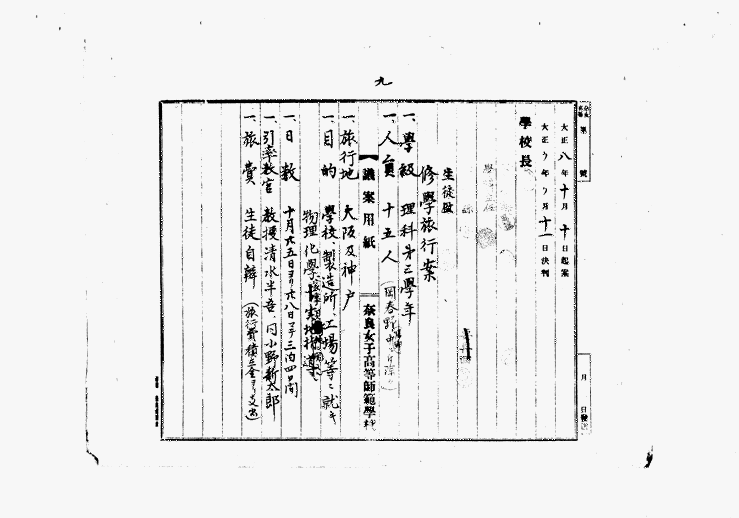 九
第 號
大正八年十月十日起案
大正 年 月十一日決判
月 日發送
學校長
生徒監
修學旅行案
一、學級 理科第三學年
一、人員 十五人
議案用紙
奈良女子高等師範學校
一、旅行地 大阪及神戸
一、目的 學校、製造所、工場等ニ就キ
物理化學 實地指導
一、日數 十月廿五日ヨリ廿八日マデ三泊四日間
一、引率教官 教授清水半吾、同小野新太郎
一、旅費 生徒自辦(旅行費積立金ヨリ支出)